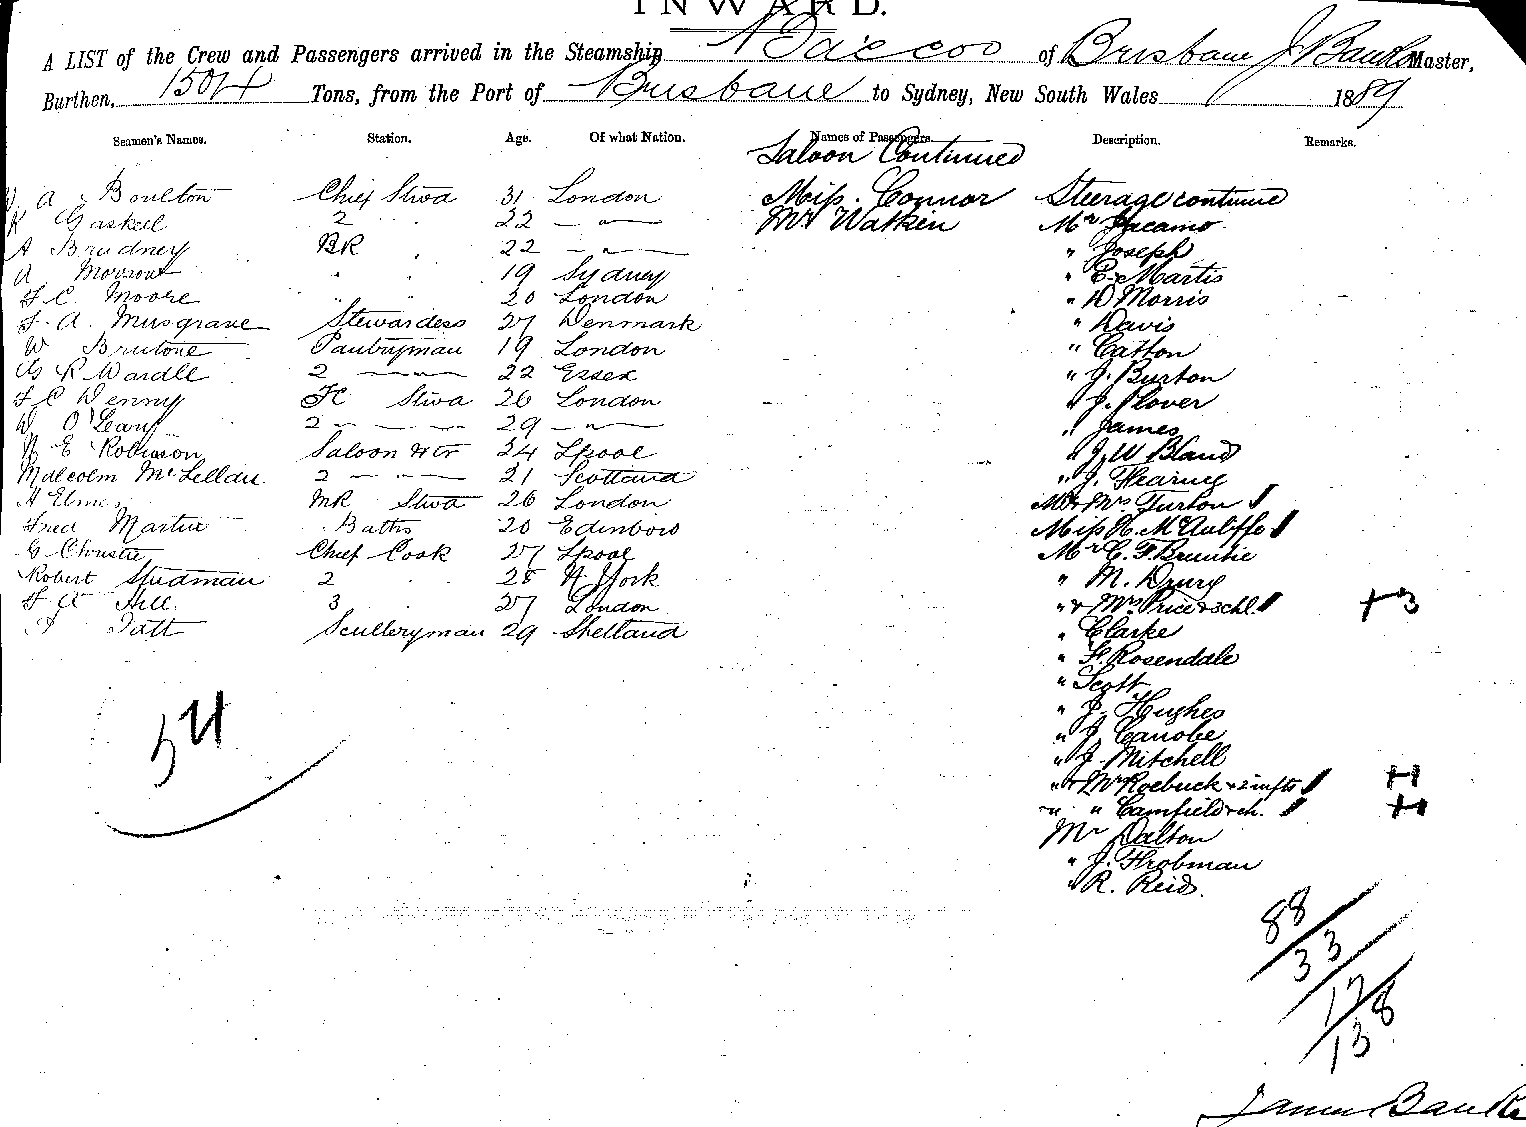 INWARD.
A LIST of the Crew and Passengers arrived in the Steamship of Brisbane J Banks Master,
Burthen, 1504 Tons, from the Port of Brisbane to Sydney, New South Wales 1889
Seamen's Names. Station. Age. Of what Nation. Names of Passengers. Description. Remarks.
Saloon Continued
A Boulton Chief Stwd 31 London Miss. Connor Steerage continued
Gaskell 2 " 22 — " — Mr Watkin Mr Jacamo
A Brudney BR 22 — " — " Joseph
A " " 19 Sydney " E. Martis
F C. Moore " " 20 London " D Morris
F. A. Musgrave Stewardess 27 Denmark " Davis
W Brutone Pantryman 19 London " Catton
G R Wardle 2 — " — 22 Essex " J. Burton
F C Denny FC Stwd 26 London " J. Plover
W O'Leary 2 — " — 29 — " — " James
N E Robinson Saloon Wtr 24 Lpool " J. W Bland
Malcolm McLellan 2 — " — 21 Scotland " J.
H Elmes MR Stwd 26 London Mr & Mrs Turton
Fred Martin Baths 20 Edinboro Miss H. McAuliffe
G Christie Chief Cook 27 Lpool Mr C. F.
Robert Studman 2 " 28 N. York " M. Drury
F Hill. 3 " 27 London " & Mrs Price & 3chl. + 3
Tatt Sculleryman 29 Shetland " Clarke
" F. Rosendale
" Scott
" J. Hughes
" J. Canobe
" J. Mitchell
54
" & Mrs Roebuck & 2 infts
" " Camfield & ch.
Mr Dalton
" J. Frobman
" R. Reid.
88
33
17
138
James Banks